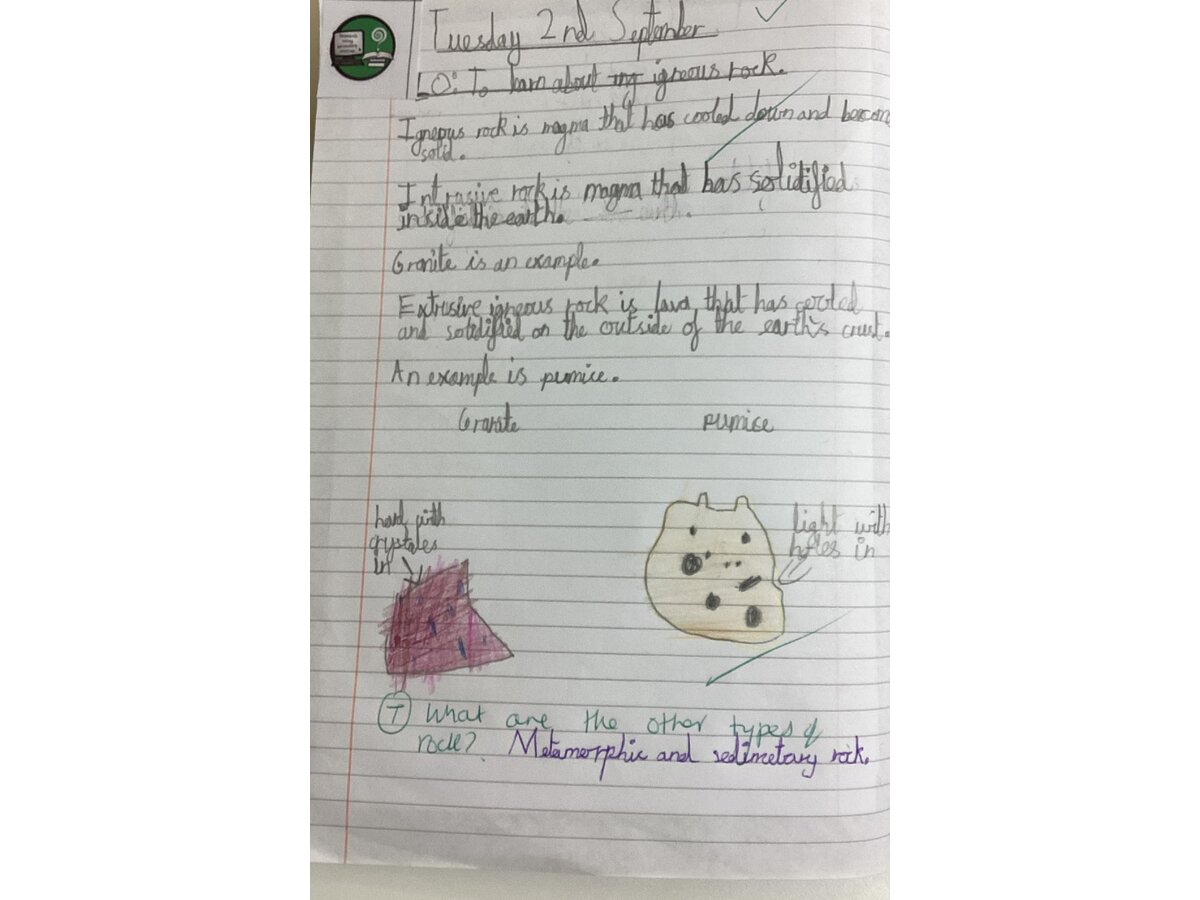 Tuesday 2nd September
LO: To learn about ing igneous rock.
Igneous rock is magma that has cooled down and become
solid.
Intrusive rock is magma that has solidified
inside the earth. earth.
Granite is an example.
Extrusive igneous rock is lava that has cooled
and solidified on the outside of the earth's crust.
An example is pumice.
Granite pumice
hard with
crystales
in
light with
holes in
T What are the other types of
rock? Metamorphic and sedimetary rock.